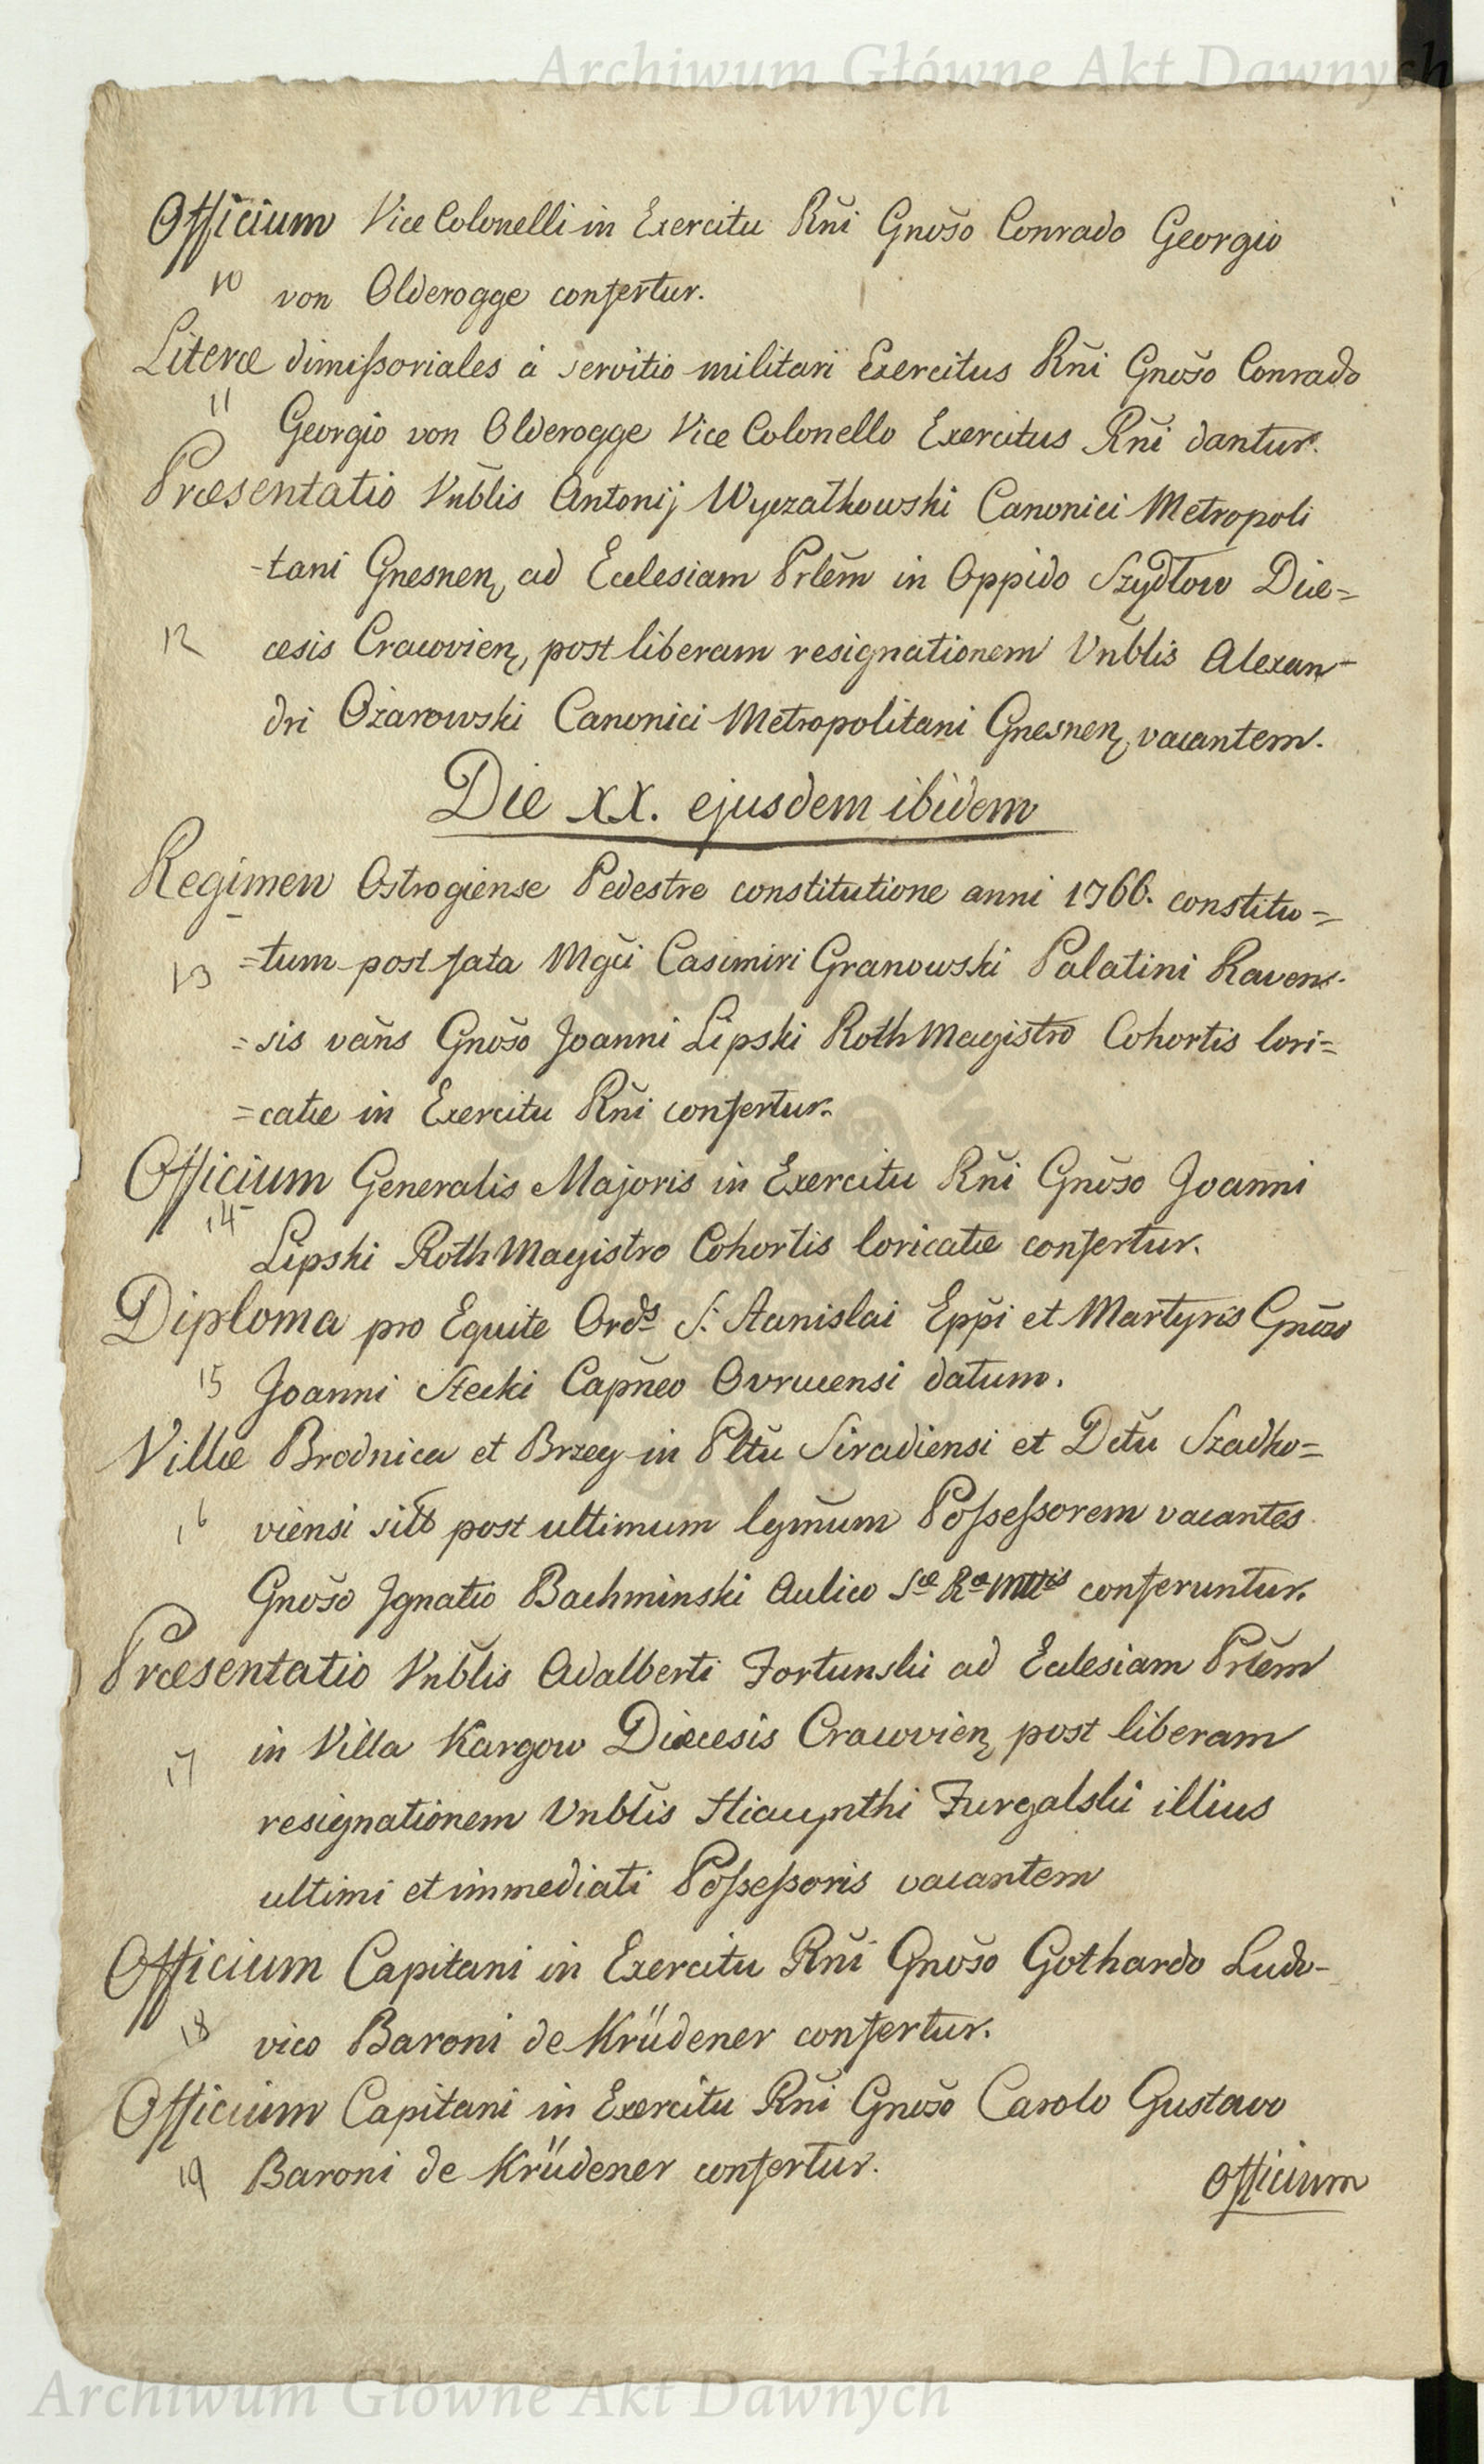 Archiwum Główne Akt Dawnych
Officium Vice Colonelli in Exercitu Rñi Gnõso Conrado Georgio
10 von Olderogge confertur.
Literæ dimissoriales à servitio militari Exercitus Rñi Gnõso Conrado
11 Georgio von Olderogge Vice Colonello Exercitus Rñi dantur.
Præsentatio Vnb̃lis Antonij Wyczałkowski Canonici Metropoli
-tani Gnesnen, ad Ecclesiam Prlẽm in Oppido Szydłow Diæ=
12 cesis Cracovien, post liberam resignationem Vnb̃lis Alexan-
dri Ożarowski Canonici Metropolitani Gnesnen, vacantem.
Die XX. ejusdem ibidem
Regimen Ostrogiense Pedestre constitutione anni 1766. constitu=
13 =tum post fata Mgci Casimiri Granowski Palatini Raven-
=sis vañs Gnõso Joanni Lipski RothMagistro Cohortis lori=
=catæ in Exercitu Rñi confertur.
Officium Generalis Majoris in Exercitu Rñi Gnõso Joanni
14 Lipski RothMagistro Cohortis loricatæ confertur.
Diploma pro Equite Ords S: Stanislai Epp̃i et Martyris Gnõso
15 Joanni Stecki Capñeo Ovrucensi datum.
Villæ Brodnica et Brzeg in Pltũ Siradiensi et Dctũ Szadko=
16 viensi sitæ post ultimum lgmũm Possessorem vacantes
Gnõso Ignatio Bachminski Aulico Sæ Ræ Mttis conferuntur.
Præsentatio Vnb̃lis Adalberti Fortunski ad Ecclesiam Prlẽm
17 in Villa Kargow Diæcesis Cracovien, post liberam
resignationem Vnb̃lis Hiacynthi Furgalski illius
ultimi et immediati Possessoris vacantem
Officium Capitani in Exercitu Rñi Gnõso Gothardo Ludo-
18 vico Baroni de Krüdener confertur.
Officium Capitani in Exercitu Rñi Gnõso Carolo Gustavo
19 Baroni de Krüdener confertur.
Officium
Archiwum Główne Akt Dawnych